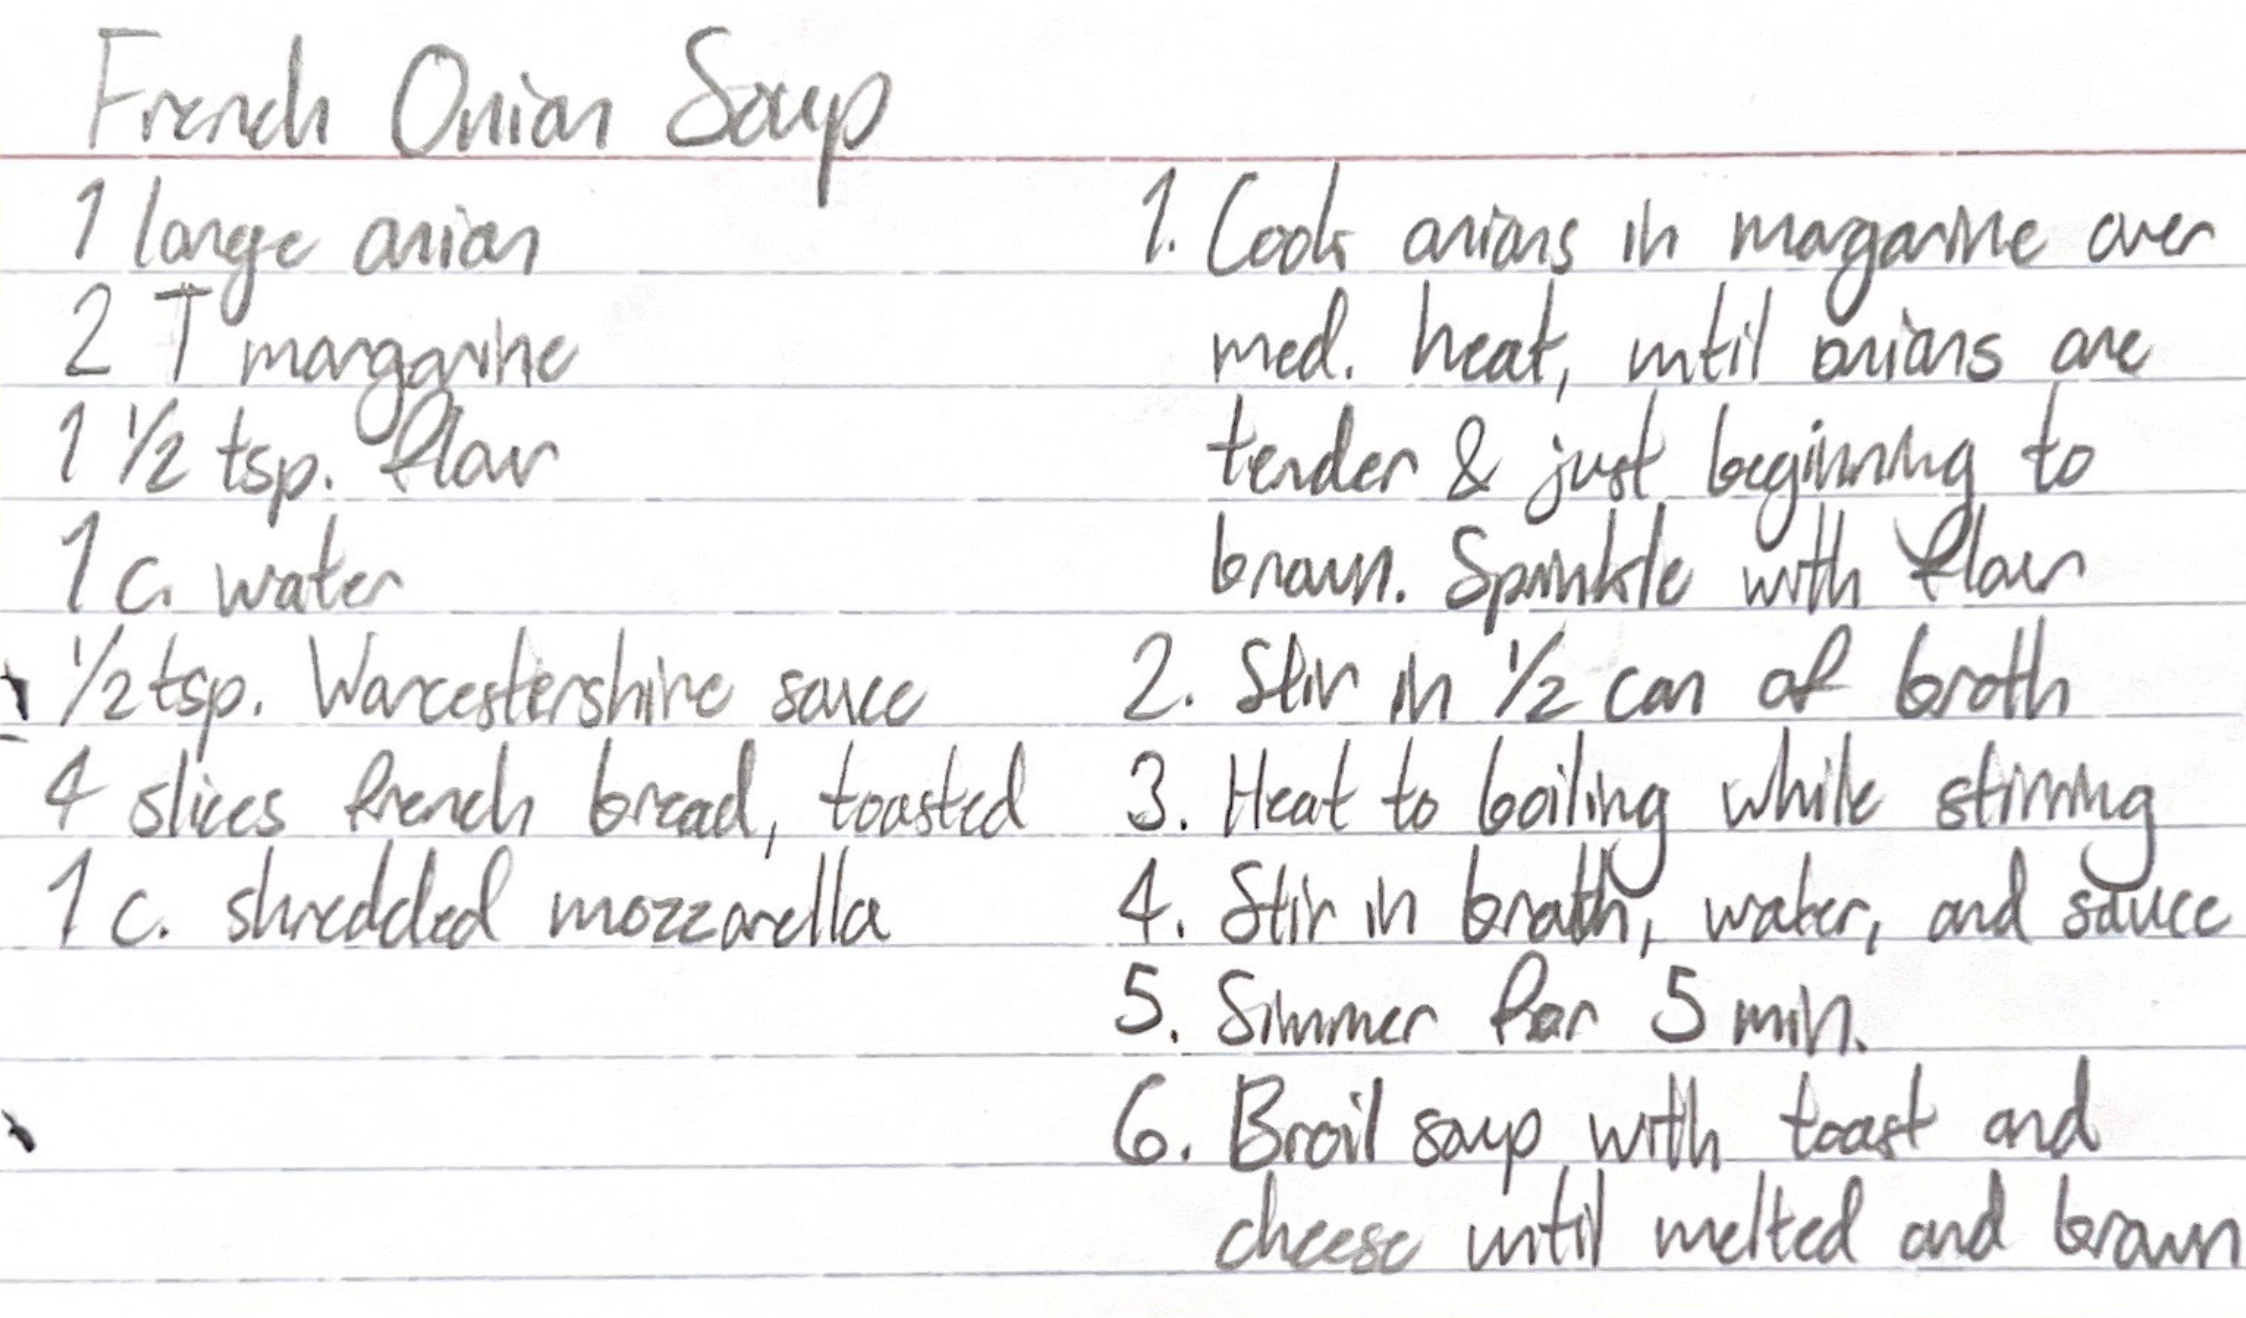 French Onion Soup
1 large onion
2 T margarine
1 1/2 tsp. flour
1 c. water
1/2 tsp. Worcestershire sauce
4 slices french bread, toasted
1 c. shredded mozzarella
1. Cook onions in margarine over
med. heat, until onions are
tender & just beginning to
brown. Sprinkle with flour
2. Stir in 1/2 can of broth
3. Heat to boiling while stirring
4. Stir in broth, water, and sauce
5. Simmer for 5 min.
6. Broil soup with toast and
cheese until melted and brown